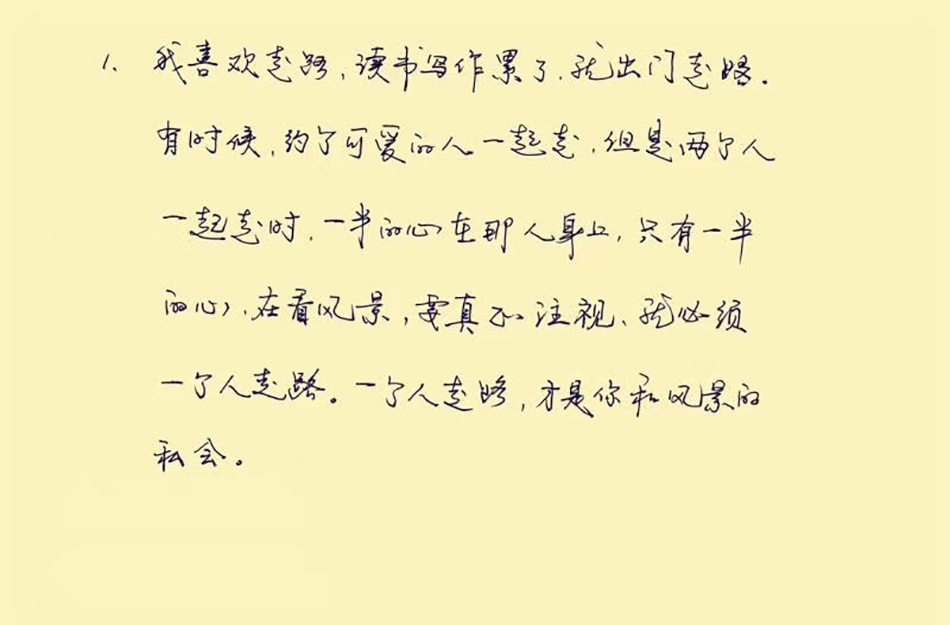 1、我喜欢走路，读书写作累了，就出门走路。
有时候，约了可爱的人一起走，但是两个人
一起走时，一半的心在那人身上，只有一半
的心，在看风景，要真正注视、就必须
一个人走路。一个人走路，才是你和风景的
私会。